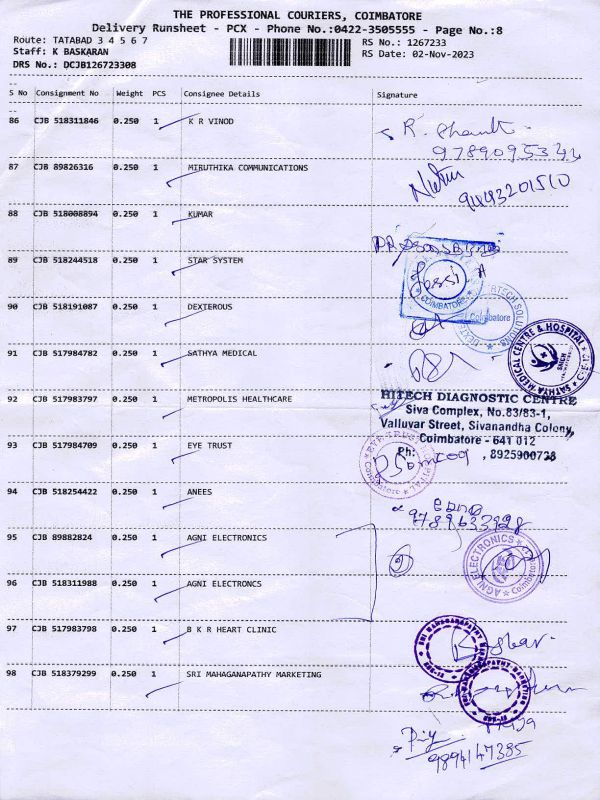 THE PROFESSIONAL COURIERS, COIMBATORE
Delivery Runsheet - PCX - Phone No.:0422-3505555 - Page No.:8
Route: TATABAD 3 4 5 6 7
Staff: K BASKARAN
DRS No.: DCJB126723308
RS No.: 1267233
RS Date: 02-Nov-2023
S No Consignment No Weight PCS Consignee Details Signature
86 CJB 518311846 0.250 1 K R VINOD
9789095342
87 CJB 89826316 0.250 1 MIRUTHIKA COMMUNICATIONS
9443201510
88 CJB 518008894 0.250 1 KUMAR
89 CJB 518244518 0.250 1 STAR SYSTEM
COIMBATORE
90 CJB 518191087 0.250 1 DEXTEROUS
Coimbatore
91 CJB 517984782 0.250 1 SATHYA MEDICAL
SATHYA MEDICAL CENTRE & HOSPITAL
92 CJB 517983797 0.250 1 METROPOLIS HEALTHCARE
HITECH DIAGNOSTIC CENTRE
Siva Complex, No.83/83-1,
Valluvar Street, Sivanandha Colony,
Coimbatore - 641 012
Ph: , 8925900728
93 CJB 517984709 0.250 1 EYE TRUST
Coimbatore
94 CJB 518254422 0.250 1 ANEES
9789633928
95 CJB 89882824 0.250 1 AGNI ELECTRONICS
AGNI ELECTRONICS
Coimbatore
96 CJB 518311988 0.250 1 AGNI ELECTRONCS
97 CJB 517983798 0.250 1 B K R HEART CLINIC
98 CJB 518379299 0.250 1 SRI MAHAGANAPATHY MARKETING
SRI MAHAGANAPATHY MARKETING
Priya
9894147385